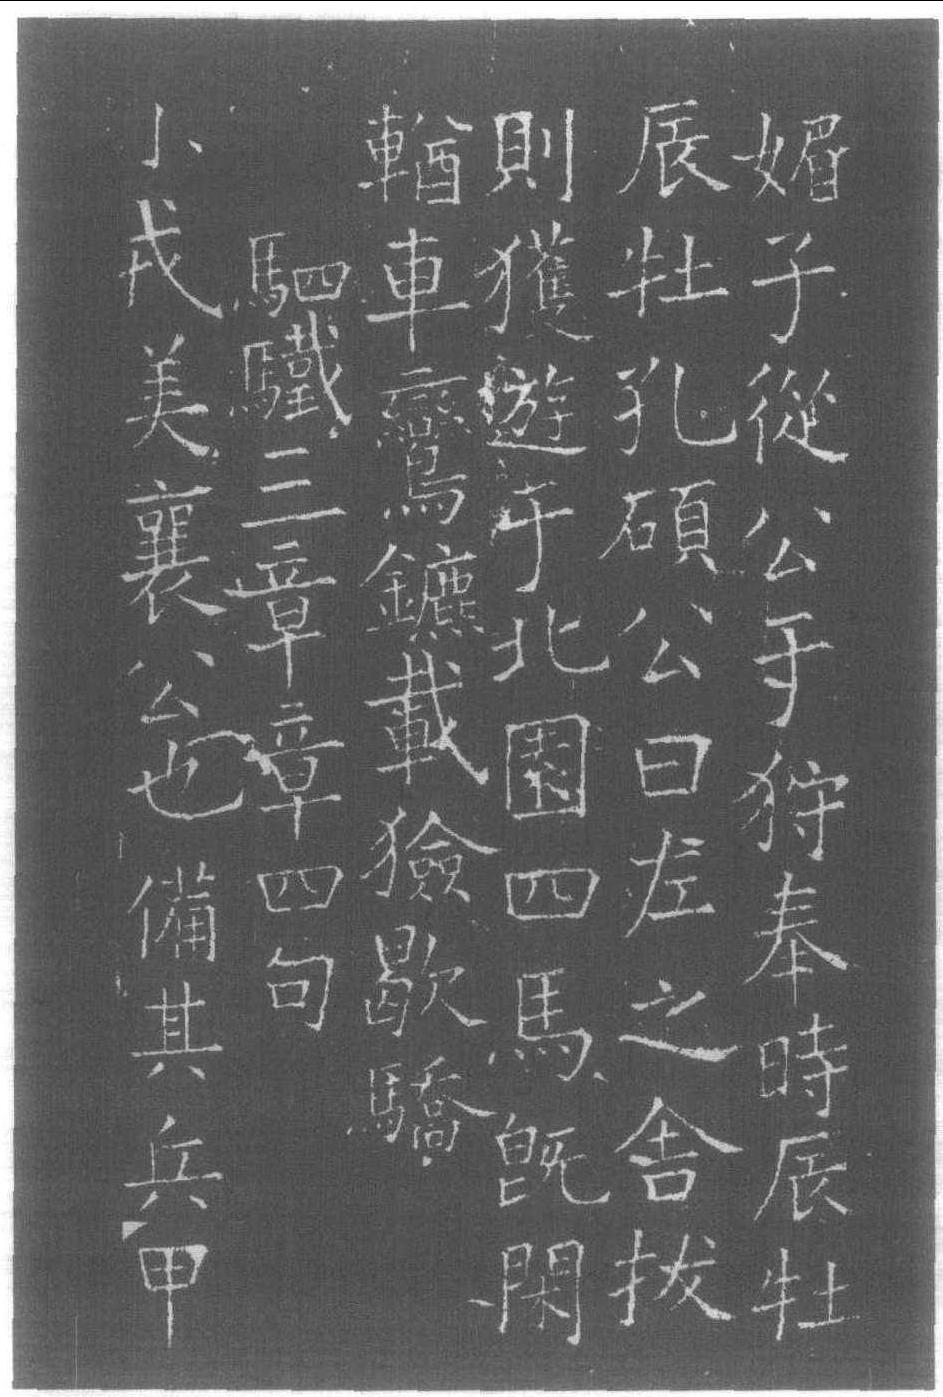 媚子從公于狩奉時辰牡
辰牡孔碩公曰左之舍拔
則獲遊于北園四馬既閑
輶車鸞鑣載獫歇驕
駟驖三章章四句
小戎美襄公也備其兵甲